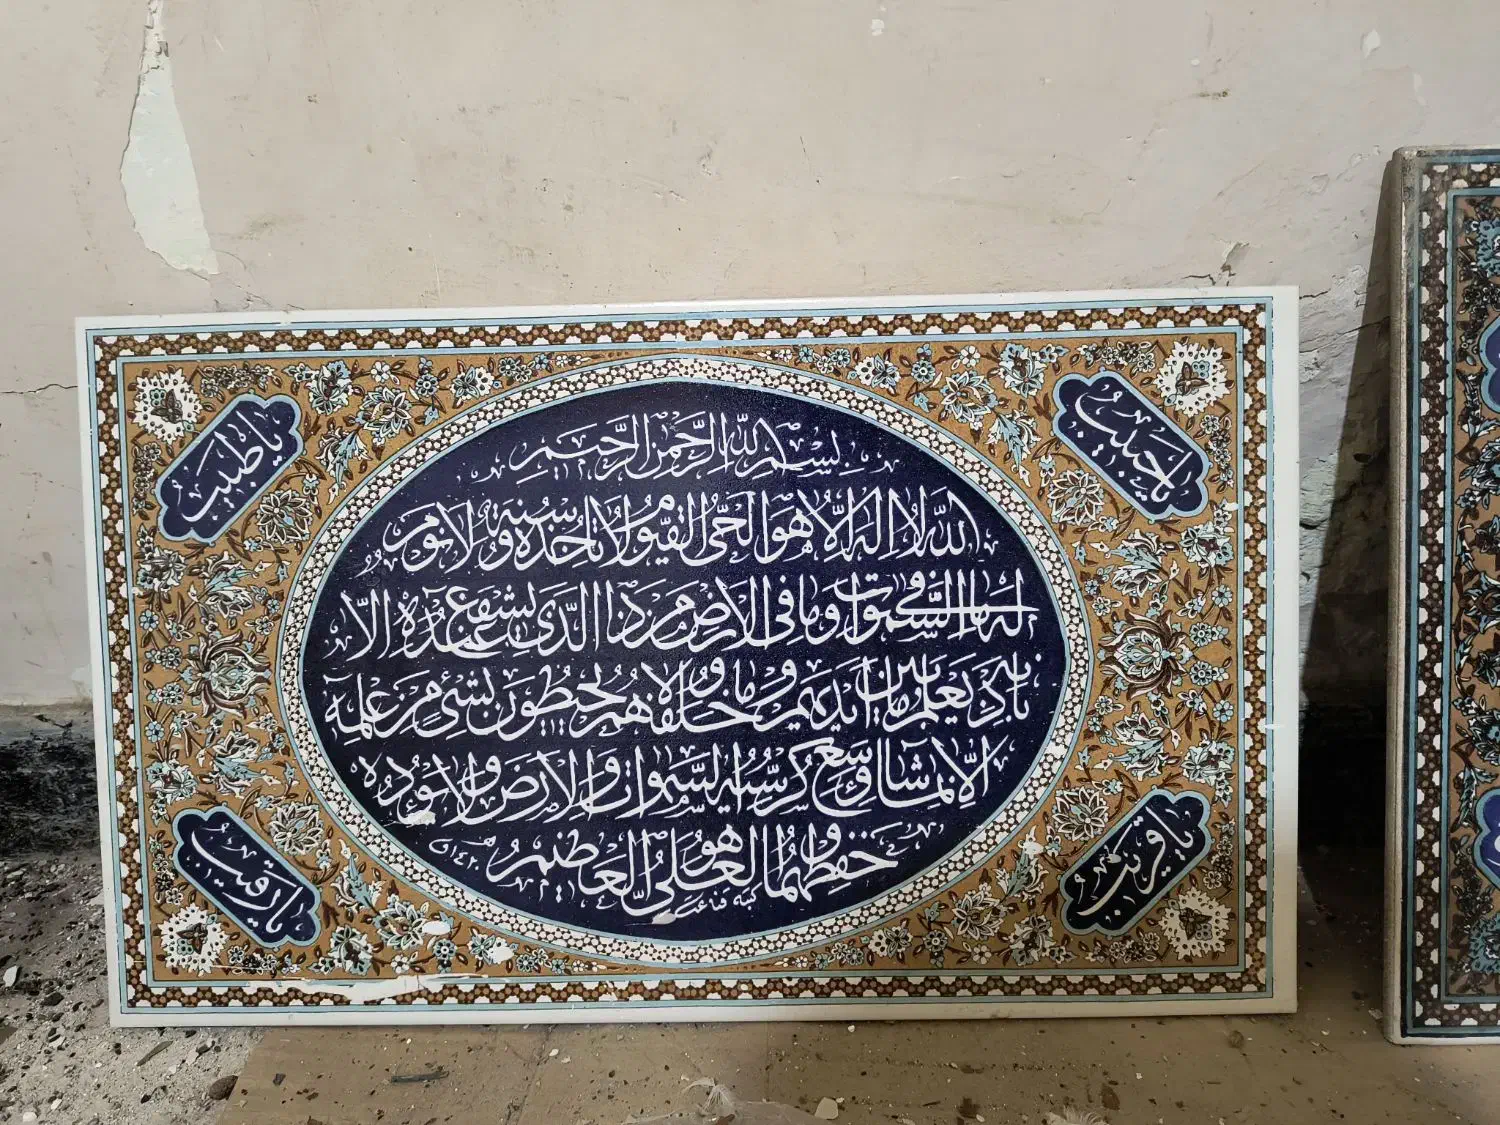 يا حبيب
يا طبيب
بسم الله الرحمن الرحيم
الله لا اله الا هو الحی القیوم لا تاخذه سنة ولا نوم
له ما فی السموات وما فی الارض من ذا الذی یشفع عنده الا
باذنه یعلم ما بین ایدیهم وما خلفهم ولا یحیطون بشیٍٔ من علمه
الا بما شاء وسع کرسیه السموات والارض ولا یوده
حفظهما وهو العلی العظیم
یا قریب
یا رقیب